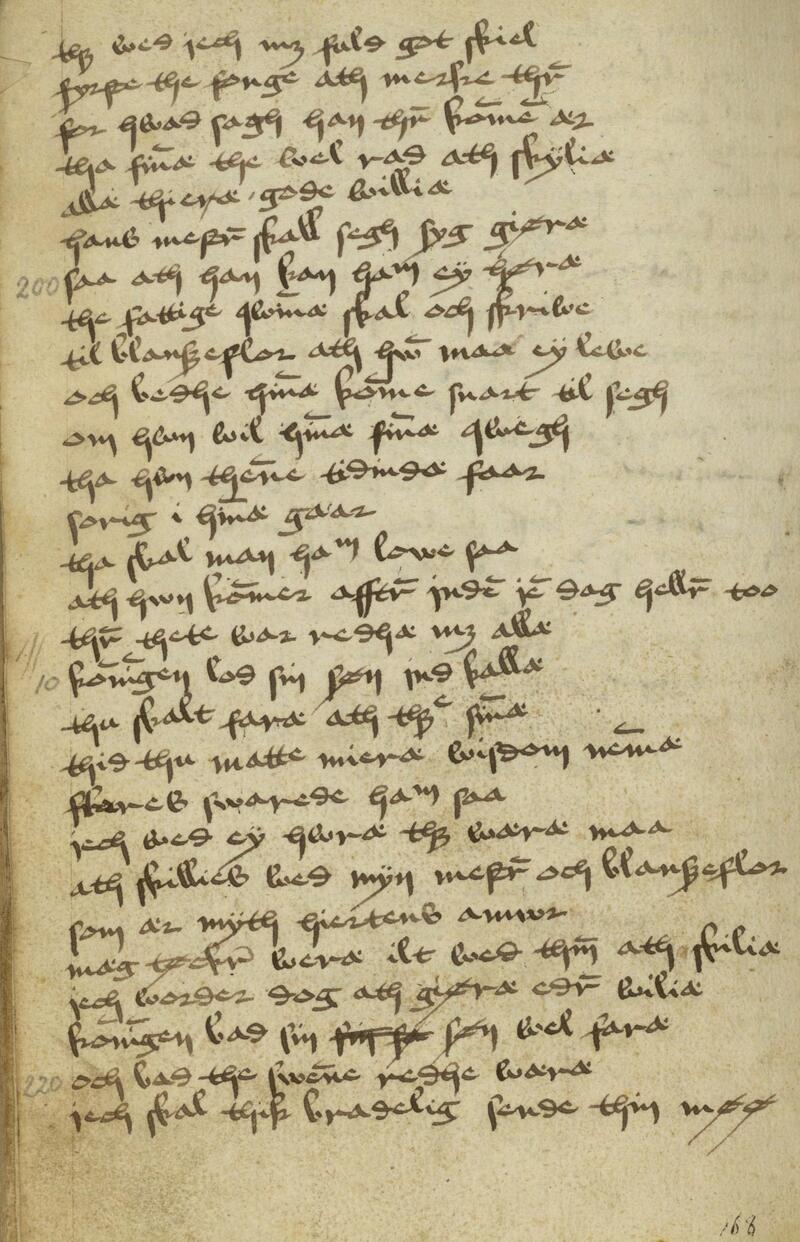 thꝫ wed jech mꝫ fuld got skiel
fyrste the fonge ath merke thr̄
for hwad sagh han thr̄ kōmē ær
tha fīnæ the wel rad ath skyliæ
allæ thieræ gode williæ
hans mestr̄ skall segh syg giøræ
200 saa ath han kan ham ey høræ
the fattige qwīnæ skal och skriwe
til blanszeflor ath hwn̄ maa ey lewe
och bedhe hīnæ kōme snart til segh
om hwn wil hīnæ fīnæ qwegh
tha hwn thēne tidindæ faar
sorig i hīnæ gaar
tha skal man ham lowe saa
ath hwn kōmer afftr̄ indē jē dag hellr̄ too
thr̄ thete war redhæ mꝫ allæ
10 kōnīgen lod sin søn ind kallæ
thu skalt faræ ath thꝫ sīnæ
thid thu matte mieræ wisdom nēmæ
fflores swarede ham saa
jech wed ey hworæ thꝫ wæræ maa
ath skillies wed myn mestr̄ och blanszeflor
som ær myth hiertens amwr
mæg tøckr̄ weræ ilt wed thm̄ ath skiliæ
jech worder dog ath giøræ edr̄ wiliæ
kōnīgen bad sin søn wel faræ
220 och bad the swēne redhe wæræ
jech skal thik bradelig sende thin møø
168